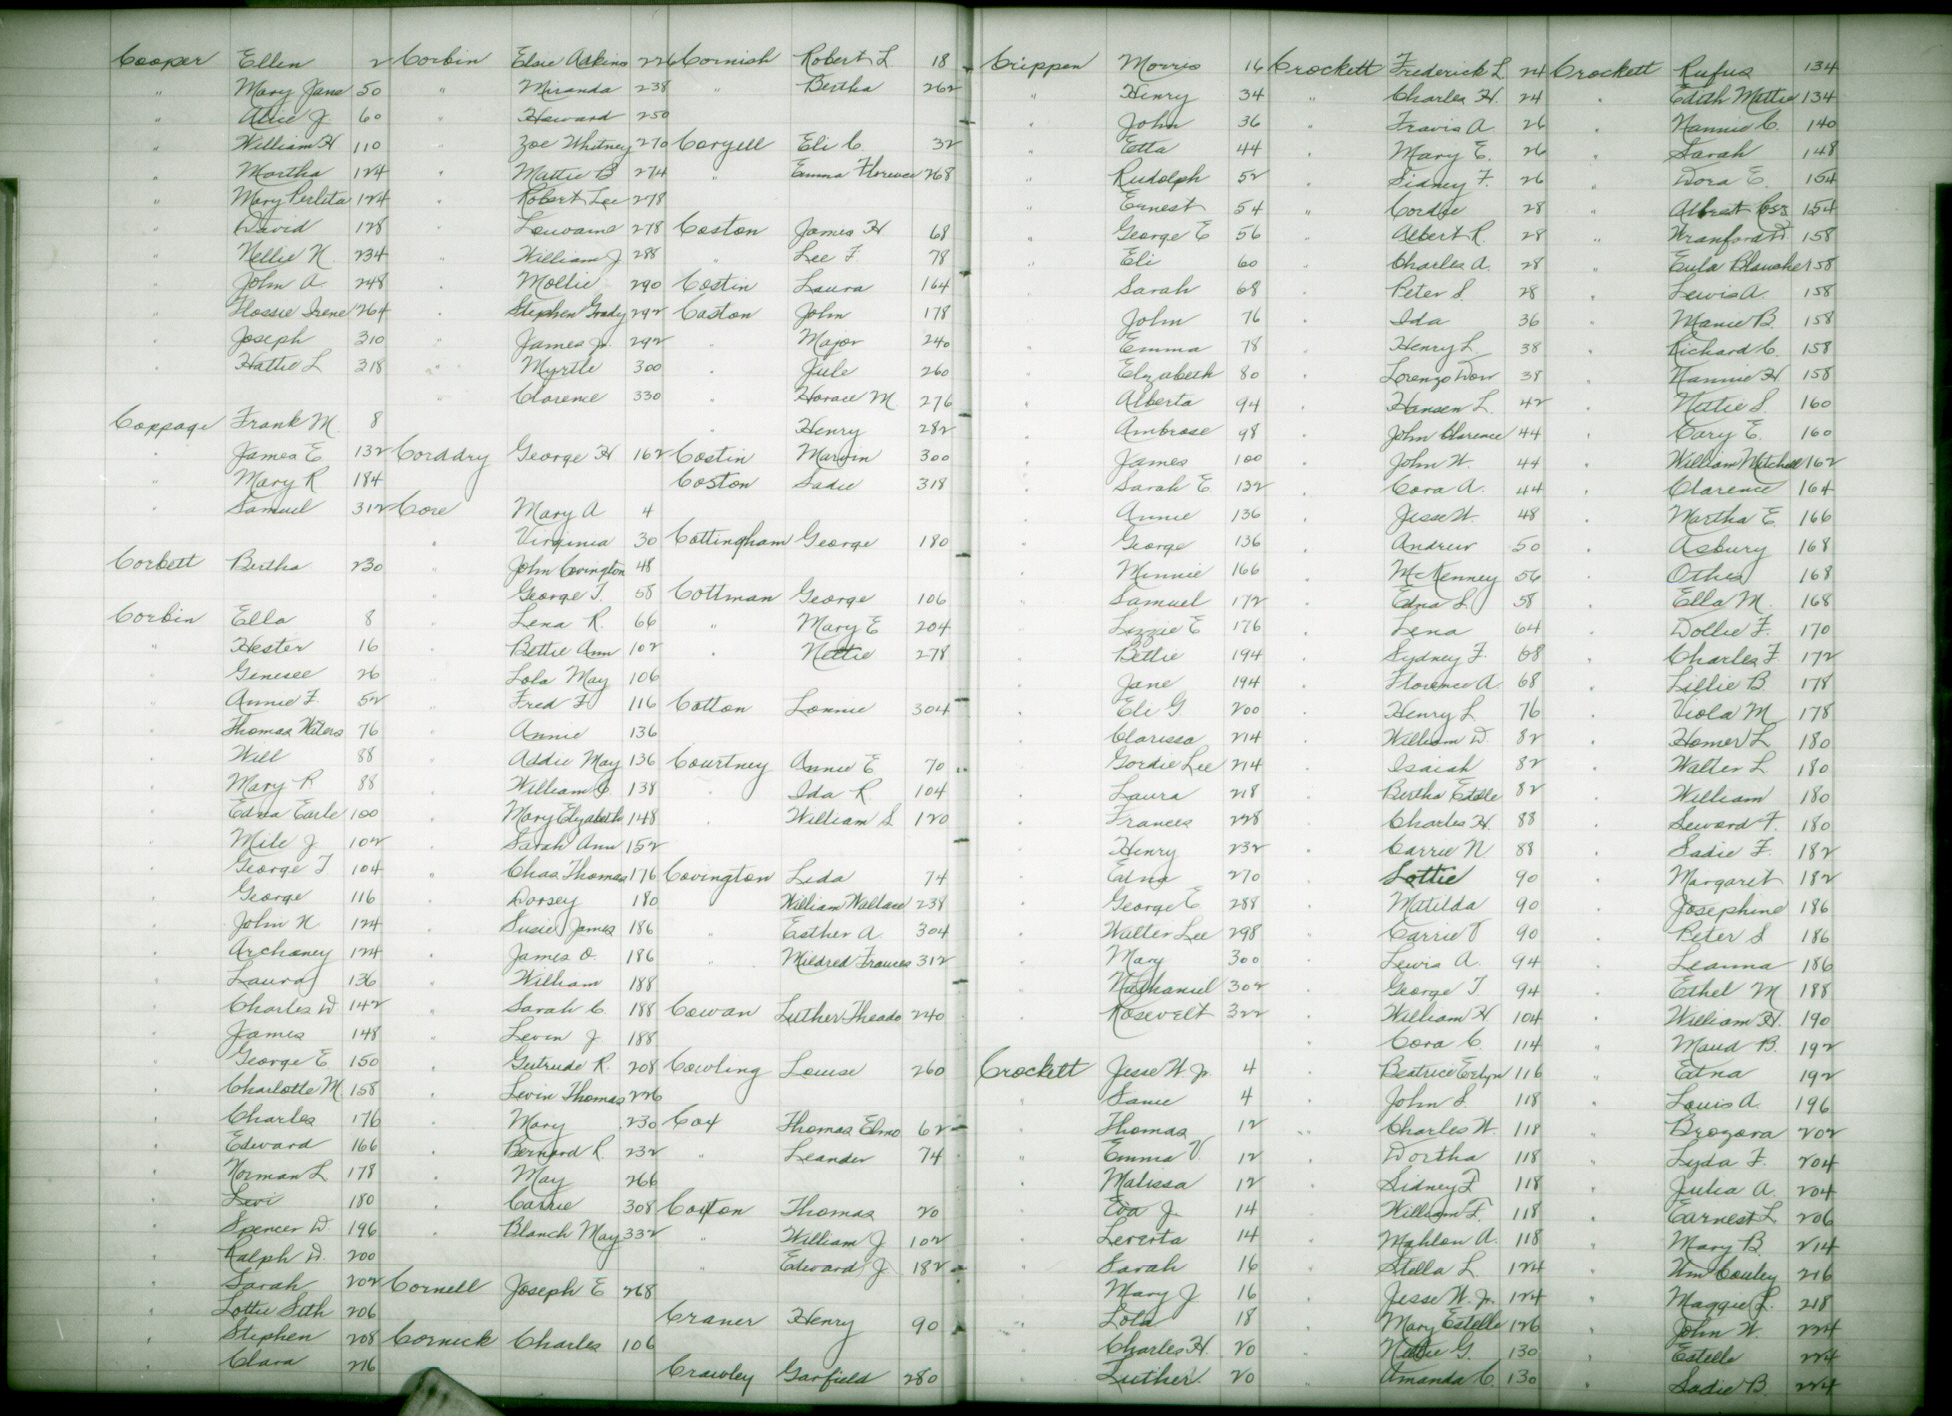 Cooper Ellen 2
" Mary Jane 50
" Alice J. 60
" William H 110
" Martha 124
" Mary Perlita 124
" David 128
" Nellie N. 234
" John A 248
" Flossie Irene 264
" Joseph 310
" Hattie L 318
Coppage Frank M. 8
" James E 132
" Mary R 184
" Samuel 312
Corbett Bertha 230
Corbin Ella 8
" Hester 16
" Genesee 26
" Annie F. 52
" Thomas Waters 76
" Will 88
" Mary R 88
" Edna Earle 100
" Mile J 102
" George T 104
" George 116
" John N 124
" Archaney 124
" Laura 136
" Charles W 142
" James 148
" George E 150
" Charlotte M. 158
" Charles 176
" Edward 166
" Norman L 178
" Levi 180
" Spencer W. 196
" Ralph W. 200
" Sarah 202
" Lottie Seth 206
" Stephen 208
" Clara 216
Corbin Elsie Adkins 226
" Miranda 238
" Howard 250
" Zoe Whitney 270
" Mattie B 274
" Robert Lee 278
" Louvame 278
" William J 288
" Mollie 290
" Stephen Grady 292
" James Jr. 292
" Myrtle 300
" Clarence 330
Corddry George H 162
Core Mary A 4
" Virginia 30
" John Covington 48
" George T. 58
" Lena R. 66
" Bettie Ann 102
" Lola May 106
" Fred F 116
" Annie 136
" Addie May 136
" William J 138
" Mary Elizabeth 148
" Sarah Ann 152
" Chas Thomas 176
" Dorsey 180
" Susie James 186
" James O. 186
" William 188
" Sarah C. 188
" Levin J. 188
" Gertrude R. 208
" Levin Thomas 226
" Mary 230
" Bernard R. 232
" May 266
" Carrie 308
" Blanch May 332
Cornell Joseph E 268
Cornick Charles 106
Cornish Robert L 18
" Bertha 262
Coryell Eli C. 32
" Emma Florence 268
Coston James H 68
" Lee F. 78
Costin Laura 164
Coston John 178
" Major 240
" Jule 260
" Horace M. 276
" Henry 282
Costin Marvin 300
Coston Sadie 318
Cottingham George 180
Cottman George 106
" Mary E 204
" Nettie 278
Cotton Lonnie 304
Courtney Annie E 70
" Ida R. 104
" William S 120
Covington Leda 74
William Wallace 238
" Esther A. 304
" Mildred Frances 312
Cowan Luther Theado 240
Cowling Louise 260
Cox Thomas Elmo 62
" Leander 74
Coxton Thomas 20
" William J 102
" Edward J. 182
Craner Henry 90
Crawley Garfield 280
Crippen Morris 16
" Henry 34
" John 36
" Etta 44
" Rudolph 52
" Ernest 54
" George E 56
" Eli 60
" Sarah 68
" John 76
" Emma 78
" Elizabeth 80
" Alberta 94
" Ambrose 98
" James 100
" Sarah E 132
" Annie 136
" George 136
" Minnie 166
" Samuel 172
" Lizzie E 176
" Bettie 194
" Jane 194
" Eli G 200
" Clarissa 214
" Gordie Lee 214
" Laura 218
" Frances 228
" Henry 232
" Edna 270
" George E 288
" Walter Lee 298
" Mary 300
" Nathaniel 302
" Rosevelt 322
Crockett Jesse W. Jr. 4
" Samie 4
" Thomas 12
" Emma V. 12
" Malissa 12
" Eva J. 14
" Leverta 14
" Sarah 16
" Mary J 16
" Lola 18
" Charles H. 20
" Luther 20
Crockett Frederick L 24
" Charles H. 24
" Travis A 26
" Mary E. 26
" Sidney F. 26
" Cordie 28
" Albert R. 28
" Charles A. 28
" Peter S. 28
" Ida 36
" Henry L 38
" Lorenzo Dow 38
" Hansen L. 42
" John Clarence 44
" John W. 44
" Cora A. 44
" Jesse W. 48
" Andrew 50
" McKenney 56
" Edna S. 58
" Lena 64
" Sydney F. 68
" Florence A. 68
" Henry L 76
" William D. 82
" Isaiah 82
" Bertha Estelle 82
" Charles H. 88
" Carrie N. 88
" Lottie 90
" Matilda 90
" Carrie T 90
" Lewis A. 94
" George T. 94
" William H 104
" Cora C. 114
" Beatrice Evelyn 116
" John S. 118
" Charles W. 118
" Dortha 118
" Sidney F 118
" William F. 118
" Mahlon A. 118
" Stella L. 124
" Jesse W. Jr. 124
" Mary Estelle 126
" Nettie G. 130
" Amanda C. 130
Crockett Rufus 134
" Edith Mattie 134
" Nannie C. 140
" Sarah 148
" Dora E. 154
" Albert 154
" Wranford D. 158
" Eula Blanche 158
" Lewis A. 158
" Mamie B. 158
" Richard C. 158
" Nannie H. 158
" Nettie S. 160
" Cary E. 160
" William Mitchell 162
" Clarence 164
" Martha E. 166
" Asbury 168
" Othes 168
" Ella M. 168
" Dollie F. 170
" Charles F. 172
" Lillie B. 178
" Viola M 178
" Homer L 180
" Walter L 180
" William 180
" Seward F. 180
" Sadie F. 182
" Margaret 182
" Josephine 186
" Peter S 186
" Leanna 186
" Ethel M 188
" William H. 190
" Maud B. 192
" Edna 192
" Louis A. 196
" Brozora 202
" Lyda F. 204
" Julia A. 204
" Earnest L 206
" Mary B. 214
" Wm Couley 216
" Maggie L. 218
" John W. 224
" Estelle 224
" Sadie B. 224